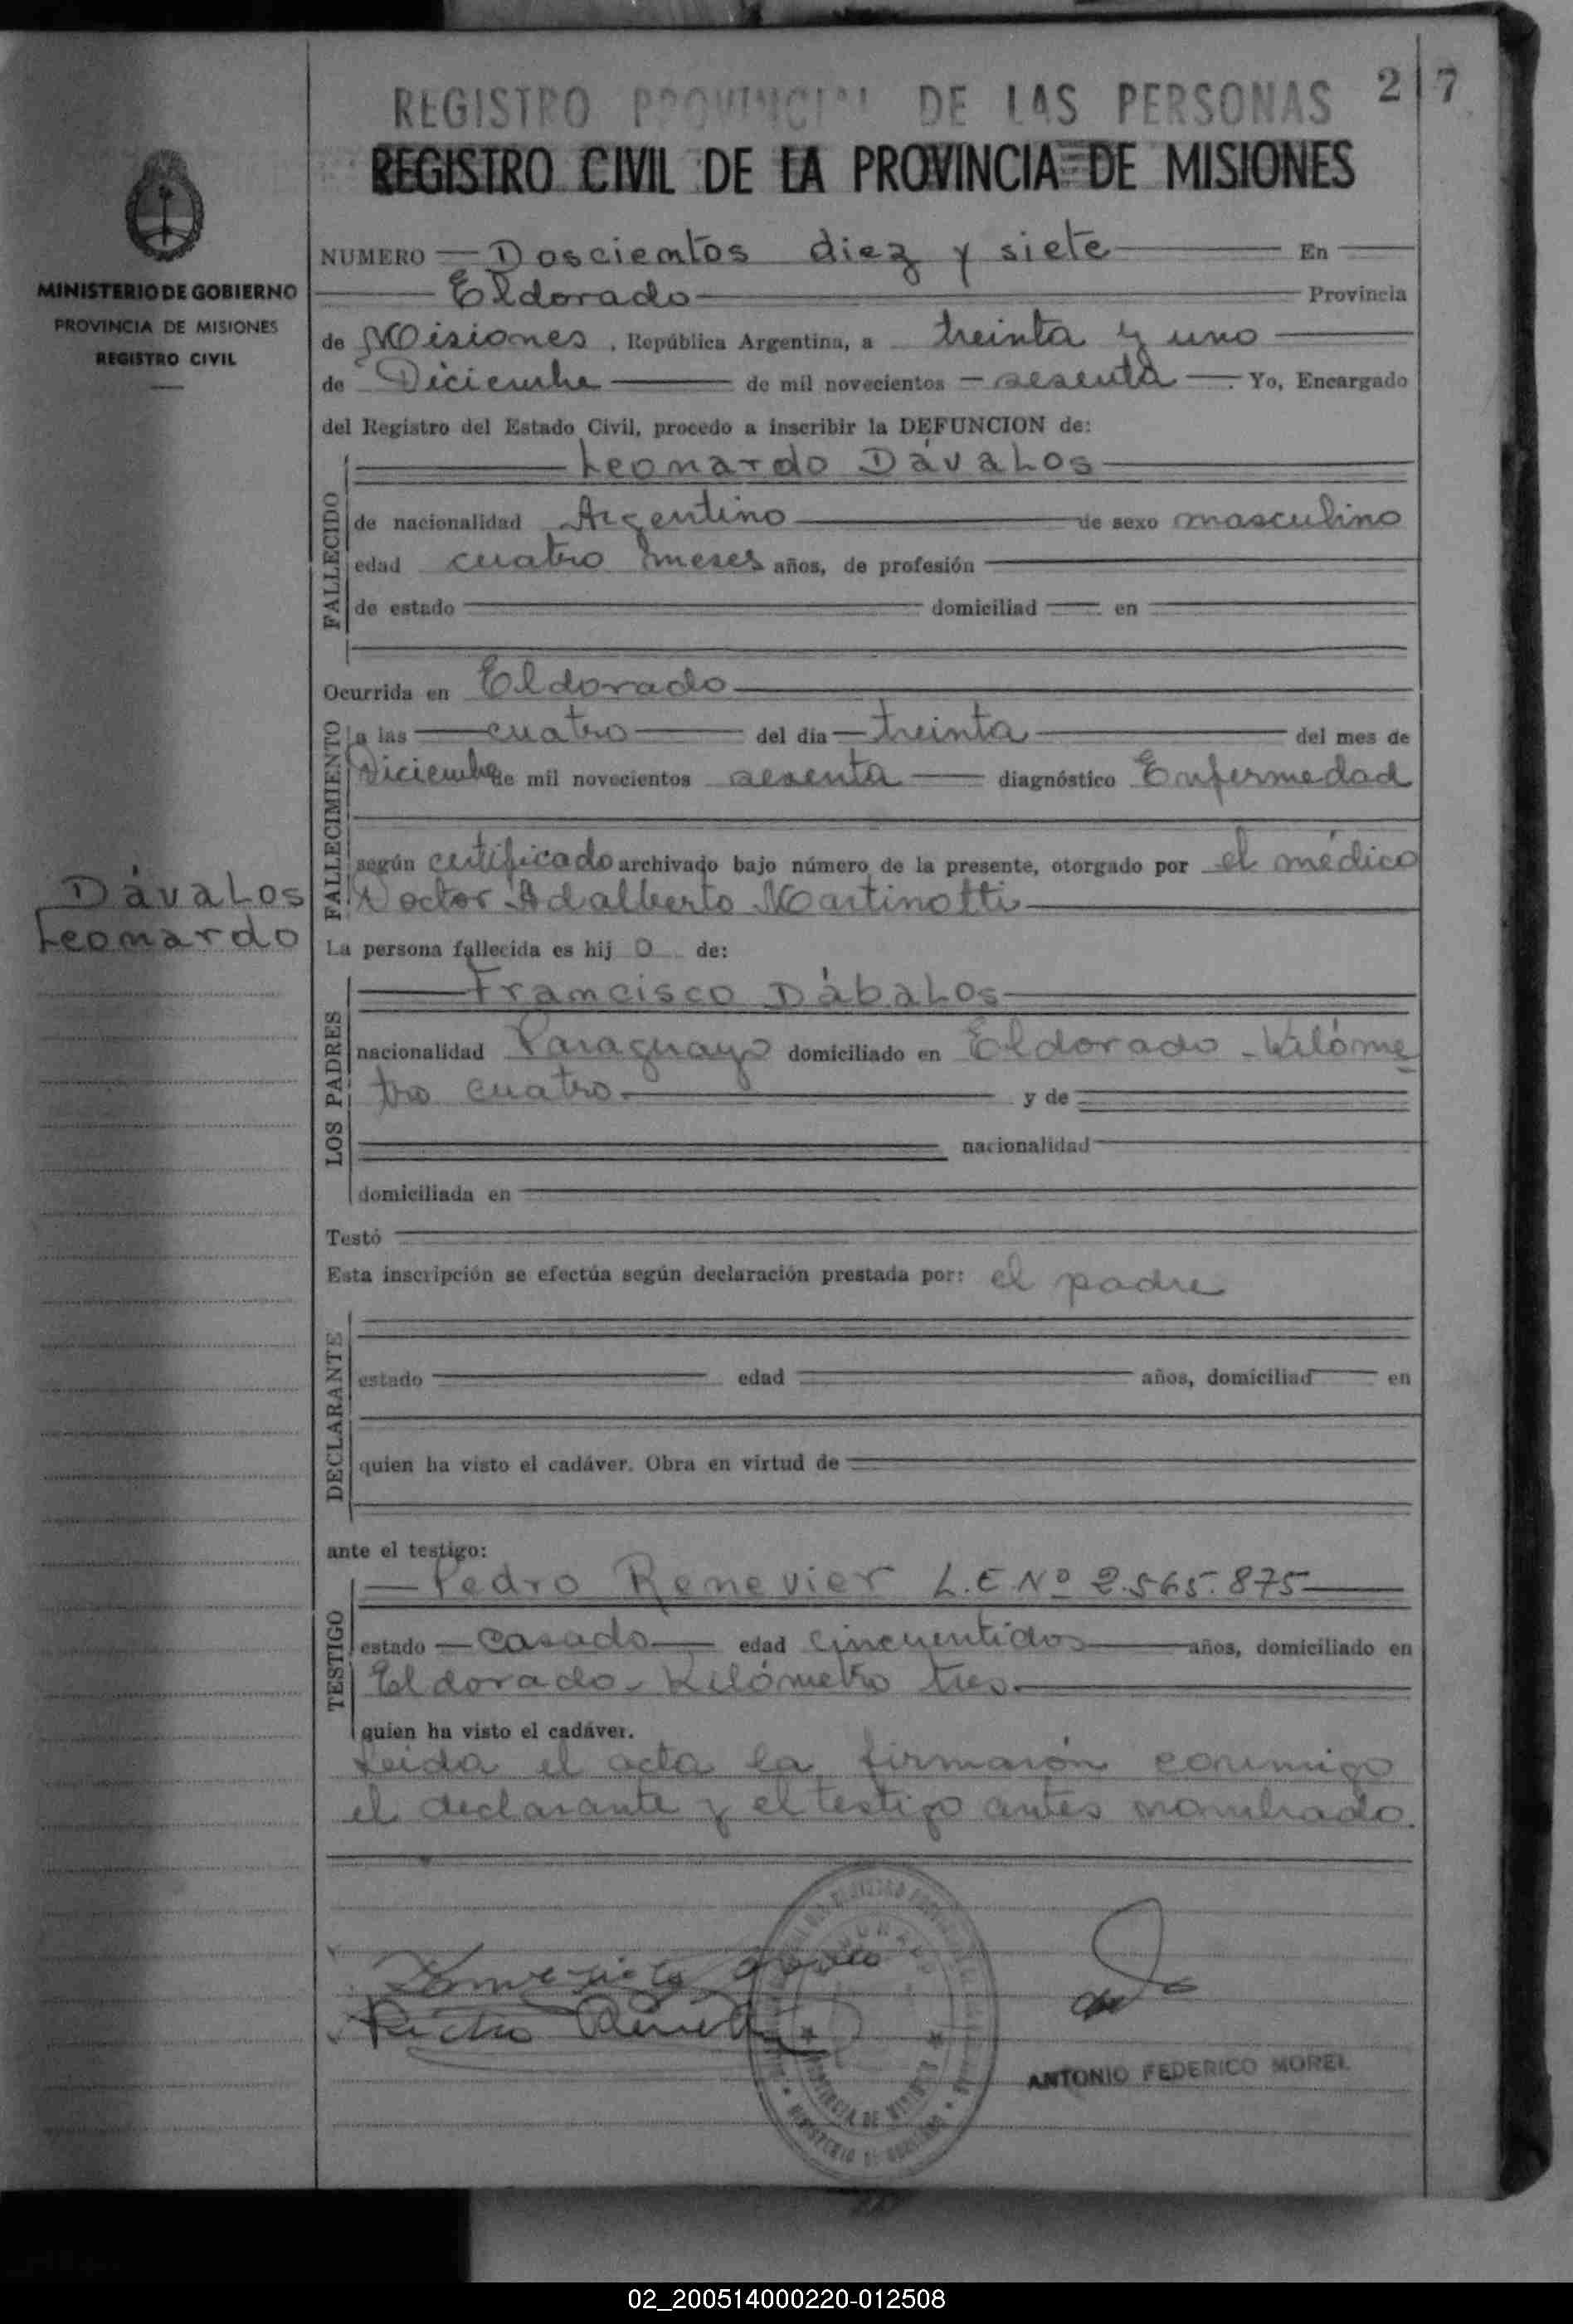 REGISTRO PROVINCIAL DE LAS PERSONAS
2 | 7
REGISTRO CIVIL DE LA PROVINCIA DE MISIONES
MINISTERIO DE GOBIERNO
PROVINCIA DE MISIONES
REGISTRO CIVIL
NUMERO Doscientos diez y siete En
Eldorado Provincia
de Misiones, República Argentina, a treinta y uno
de Diciembre de mil novecientos sesenta. Yo, Encargado
del Registro del Estado Civil, procedo a inscribir la DEFUNCION de:
FALLECIDO
Leonardo Dávalos
de nacionalidad Argentino de sexo masculino
edad cuatro meses años, de profesión
de estado domiciliad en
Ocurrida en Eldorado
FALLECIMIENTO
a las cuatro del día treinta del mes de
Diciembre de mil novecientos sesenta diagnóstico Enfermedad
según certificado archivado bajo número de la presente, otorgado por el médico
Doctor Adalberto Martinotti
Dávalos
Leonardo
La persona fallecida es hij o de:
LOS PADRES
Francisco Dábalos
nacionalidad Paraguayo domiciliado en Eldorado - Kilóme
tro cuatro. y de
nacionalidad
domiciliada en
Testó
Esta inscripción se efectúa según declaración prestada por: el padre
DECLARANTE
estado edad años, domiciliad en
quien ha visto el cadáver. Obra en virtud de
ante el testigo:
TESTIGO
Pedro Renevier L.E.Nº 2.565.875
estado casado edad cincuentidos años, domiciliado en
Eldorado - Kilómetro tres.
quien ha visto el cadáver.
Leida el acta la firmarón conmigo
el declarante y el testigo antes nombrado.
PROVINCIA DE MISIONES
MINISTERIO DE GOBIERNO
ANTONIO FEDERICO MOREL
02_200514000220-012508